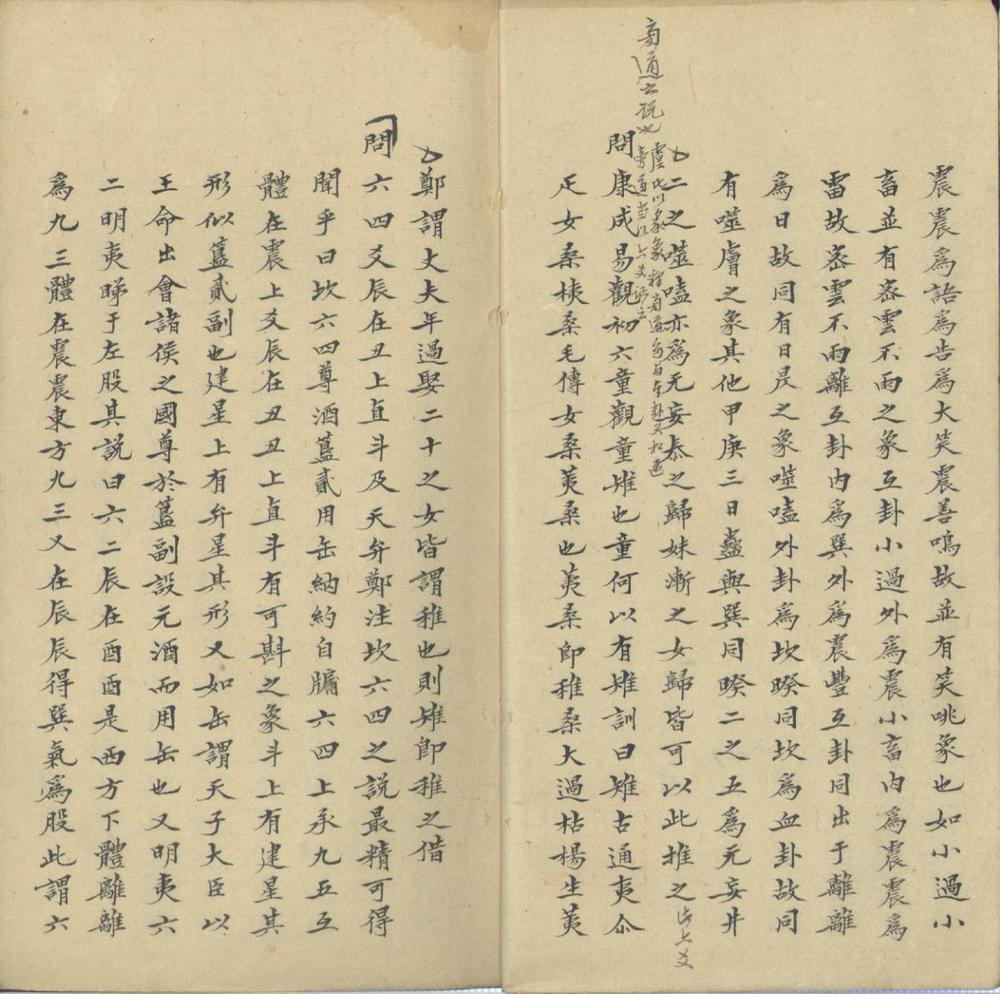 震震為語為告為大笑震善鳴故並有笑咷象也如小過小
畜並有密雲不雨之象互卦小過外為震小畜内為震震為
雷故密雲不雨離互卦内為巽外為震豐互卦同出于離離
為日故同有日昃之象噬嗑外卦為坎睽同坎為血卦故同
有噬膚之象其他甲庚三日蠱與巽同睽二之五為元妄井
二之噬嗑亦為元妄泰之歸妹漸之女歸皆可以此推之
問康成易觀初六童觀童雉也童何以有雉訓曰雉古通夷尒
疋女桑桋桑毛傳女桑荑桑也荑桑即稚桑大過枯楊生荑
鄭謂丈夫年過娶二十之女皆謂稚也則雉即稚之借
問六四爻辰在丑上直斗及天弁鄭注坎六四之説最精可得
聞乎曰坎六四尊酒簋貳用缶納約自牖六四上承九五互
體在震上爻辰在丑丑上直斗有可斟之象斗上有建星其
形似簋貳副也建星上有弁星其形又如缶謂天子大臣以
王命出會諸侯之國尊於簋副設元酒而用缶也又明夷六
二明夷睇于左股其説曰六二辰在酉酉是西方下體離離
為九三體在震震東方九三又在辰辰得巽氣為股此謂六